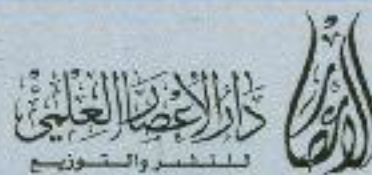 دَارُ الإِعْصَارِ العِلْمِيِّ
للنشر والتوزيع